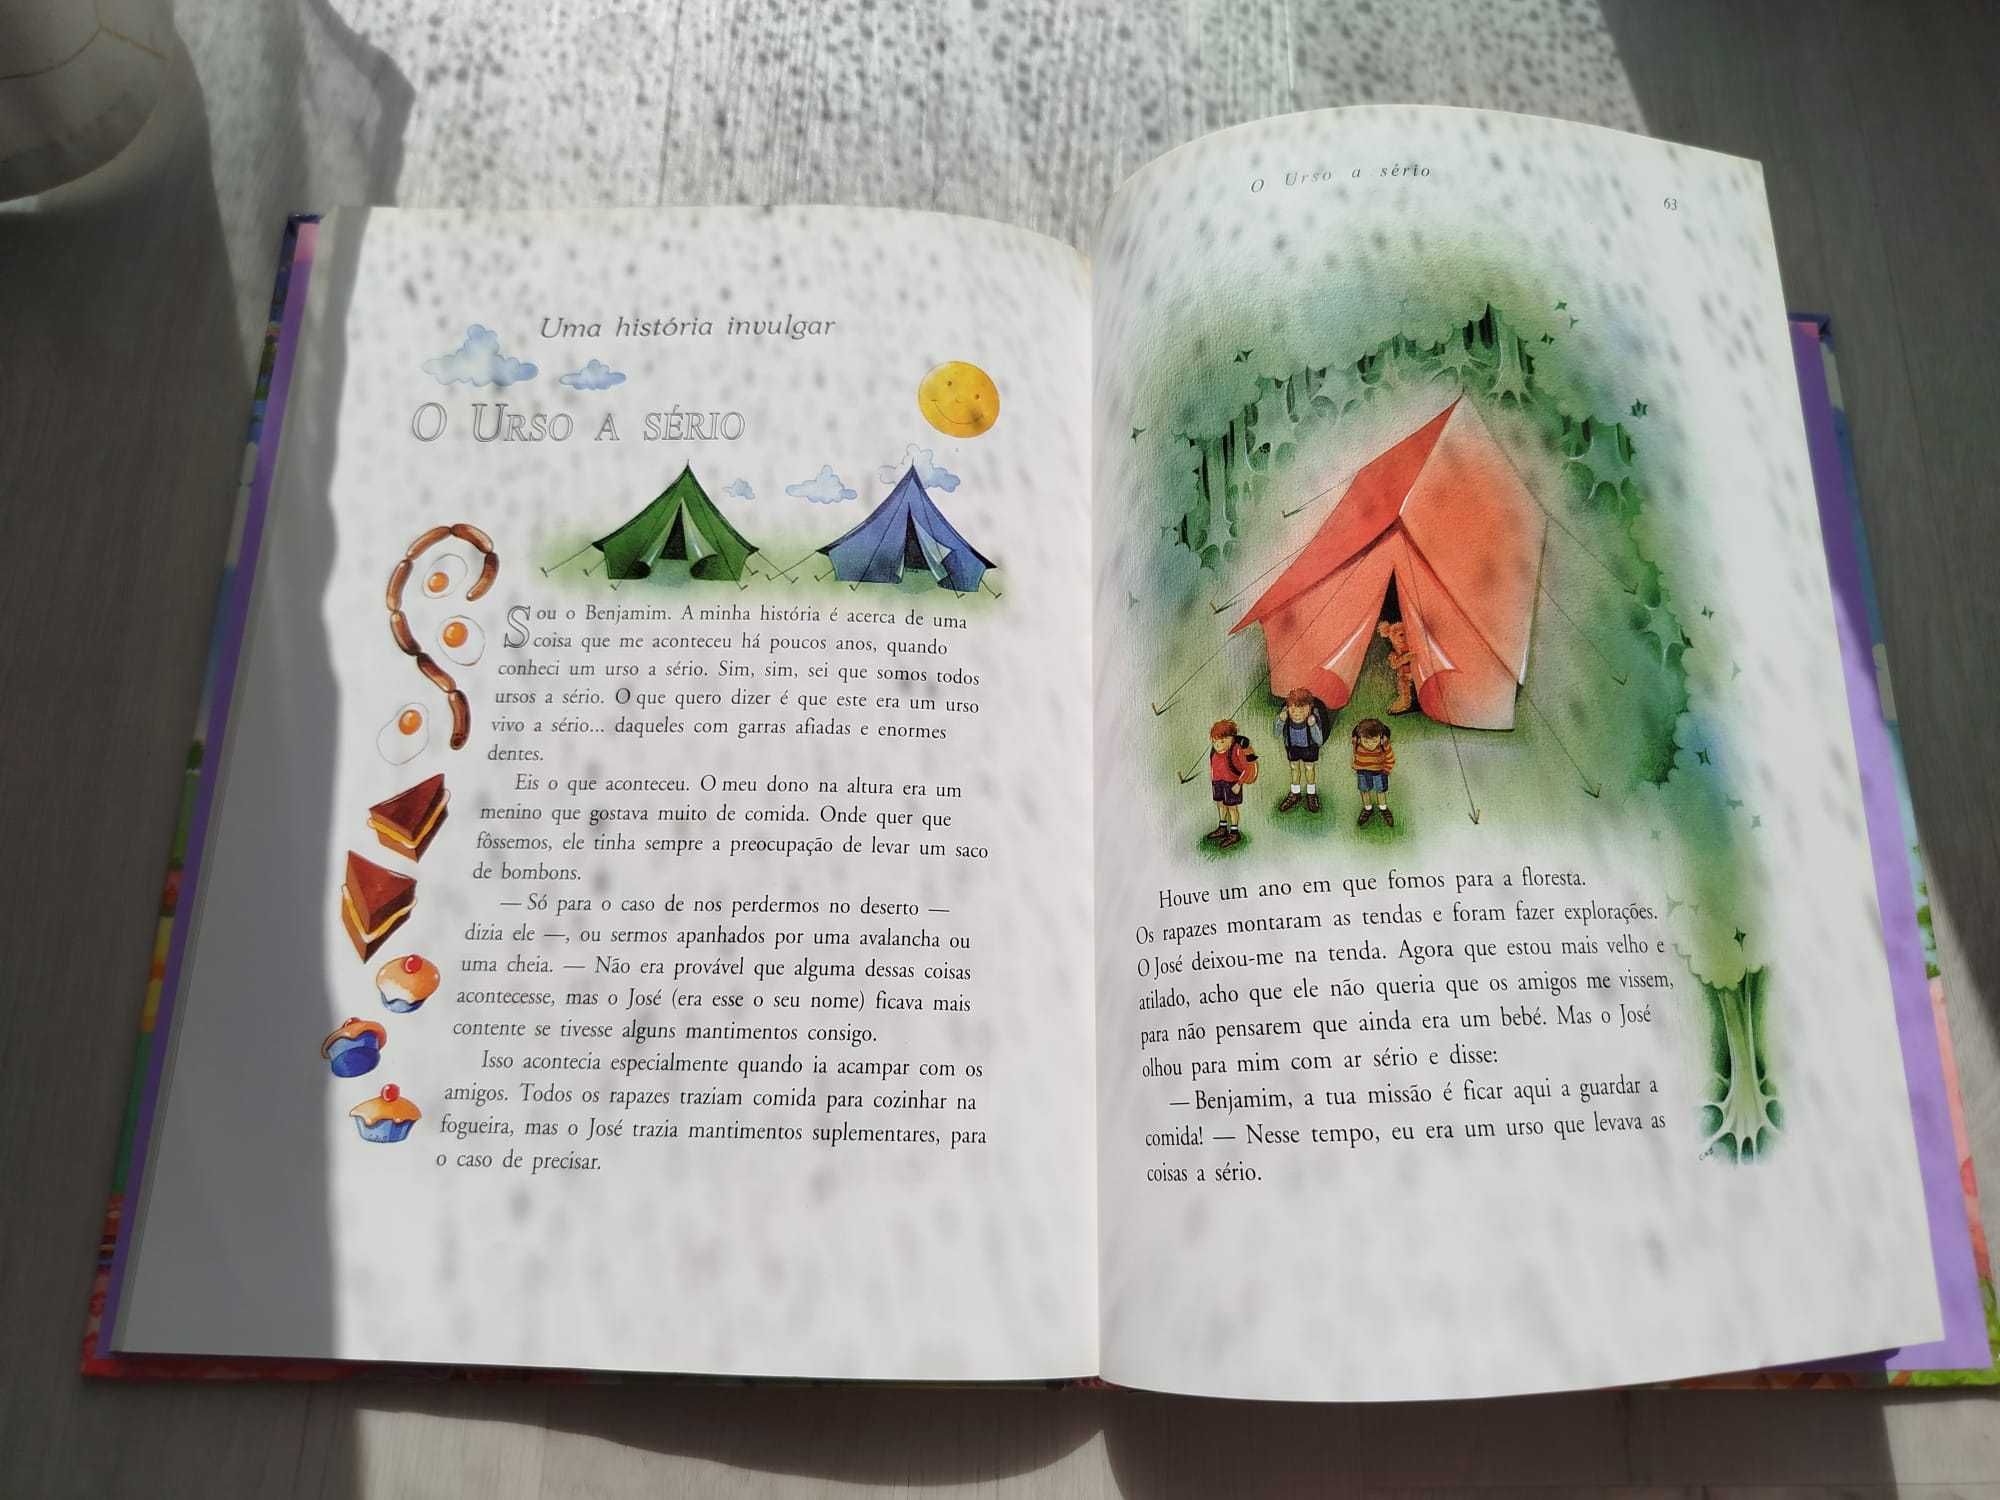 Uma história invulgar
O URSO A SÉRIO
Sou o Benjamim. A minha história é acerca de uma
coisa que me aconteceu há poucos anos, quando
conheci um urso a sério. Sim, sim, sei que somos todos
ursos a sério. O que quero dizer é que este era um urso
vivo a sério... daqueles com garras afiadas e enormes
dentes.
Eis o que aconteceu. O meu dono na altura era um
menino que gostava muito de comida. Onde quer que
fôssemos, ele tinha sempre a preocupação de levar um saco
de bombons.
— Só para o caso de nos perdermos no deserto —
dizia ele —, ou sermos apanhados por uma avalancha ou
uma cheia. — Não era provável que alguma dessas coisas
acontecesse, mas o José (era esse o seu nome) ficava mais
contente se tivesse alguns mantimentos consigo.
Isso acontecia especialmente quando ia acampar com os
amigos. Todos os rapazes traziam comida para cozinhar na
fogueira, mas o José trazia mantimentos suplementares, para
o caso de precisar.
O Urso a sério
63
Houve um ano em que fomos para a floresta.
Os rapazes montaram as tendas e foram fazer explorações.
O José deixou-me na tenda. Agora que estou mais velho e
atilado, acho que ele não queria que os amigos me vissem,
para não pensarem que ainda era um bebé. Mas o José
olhou para mim com ar sério e disse:
— Benjamim, a tua missão é ficar aqui a guardar a
comida! — Nesse tempo, eu era um urso que levava as
coisas a sério.